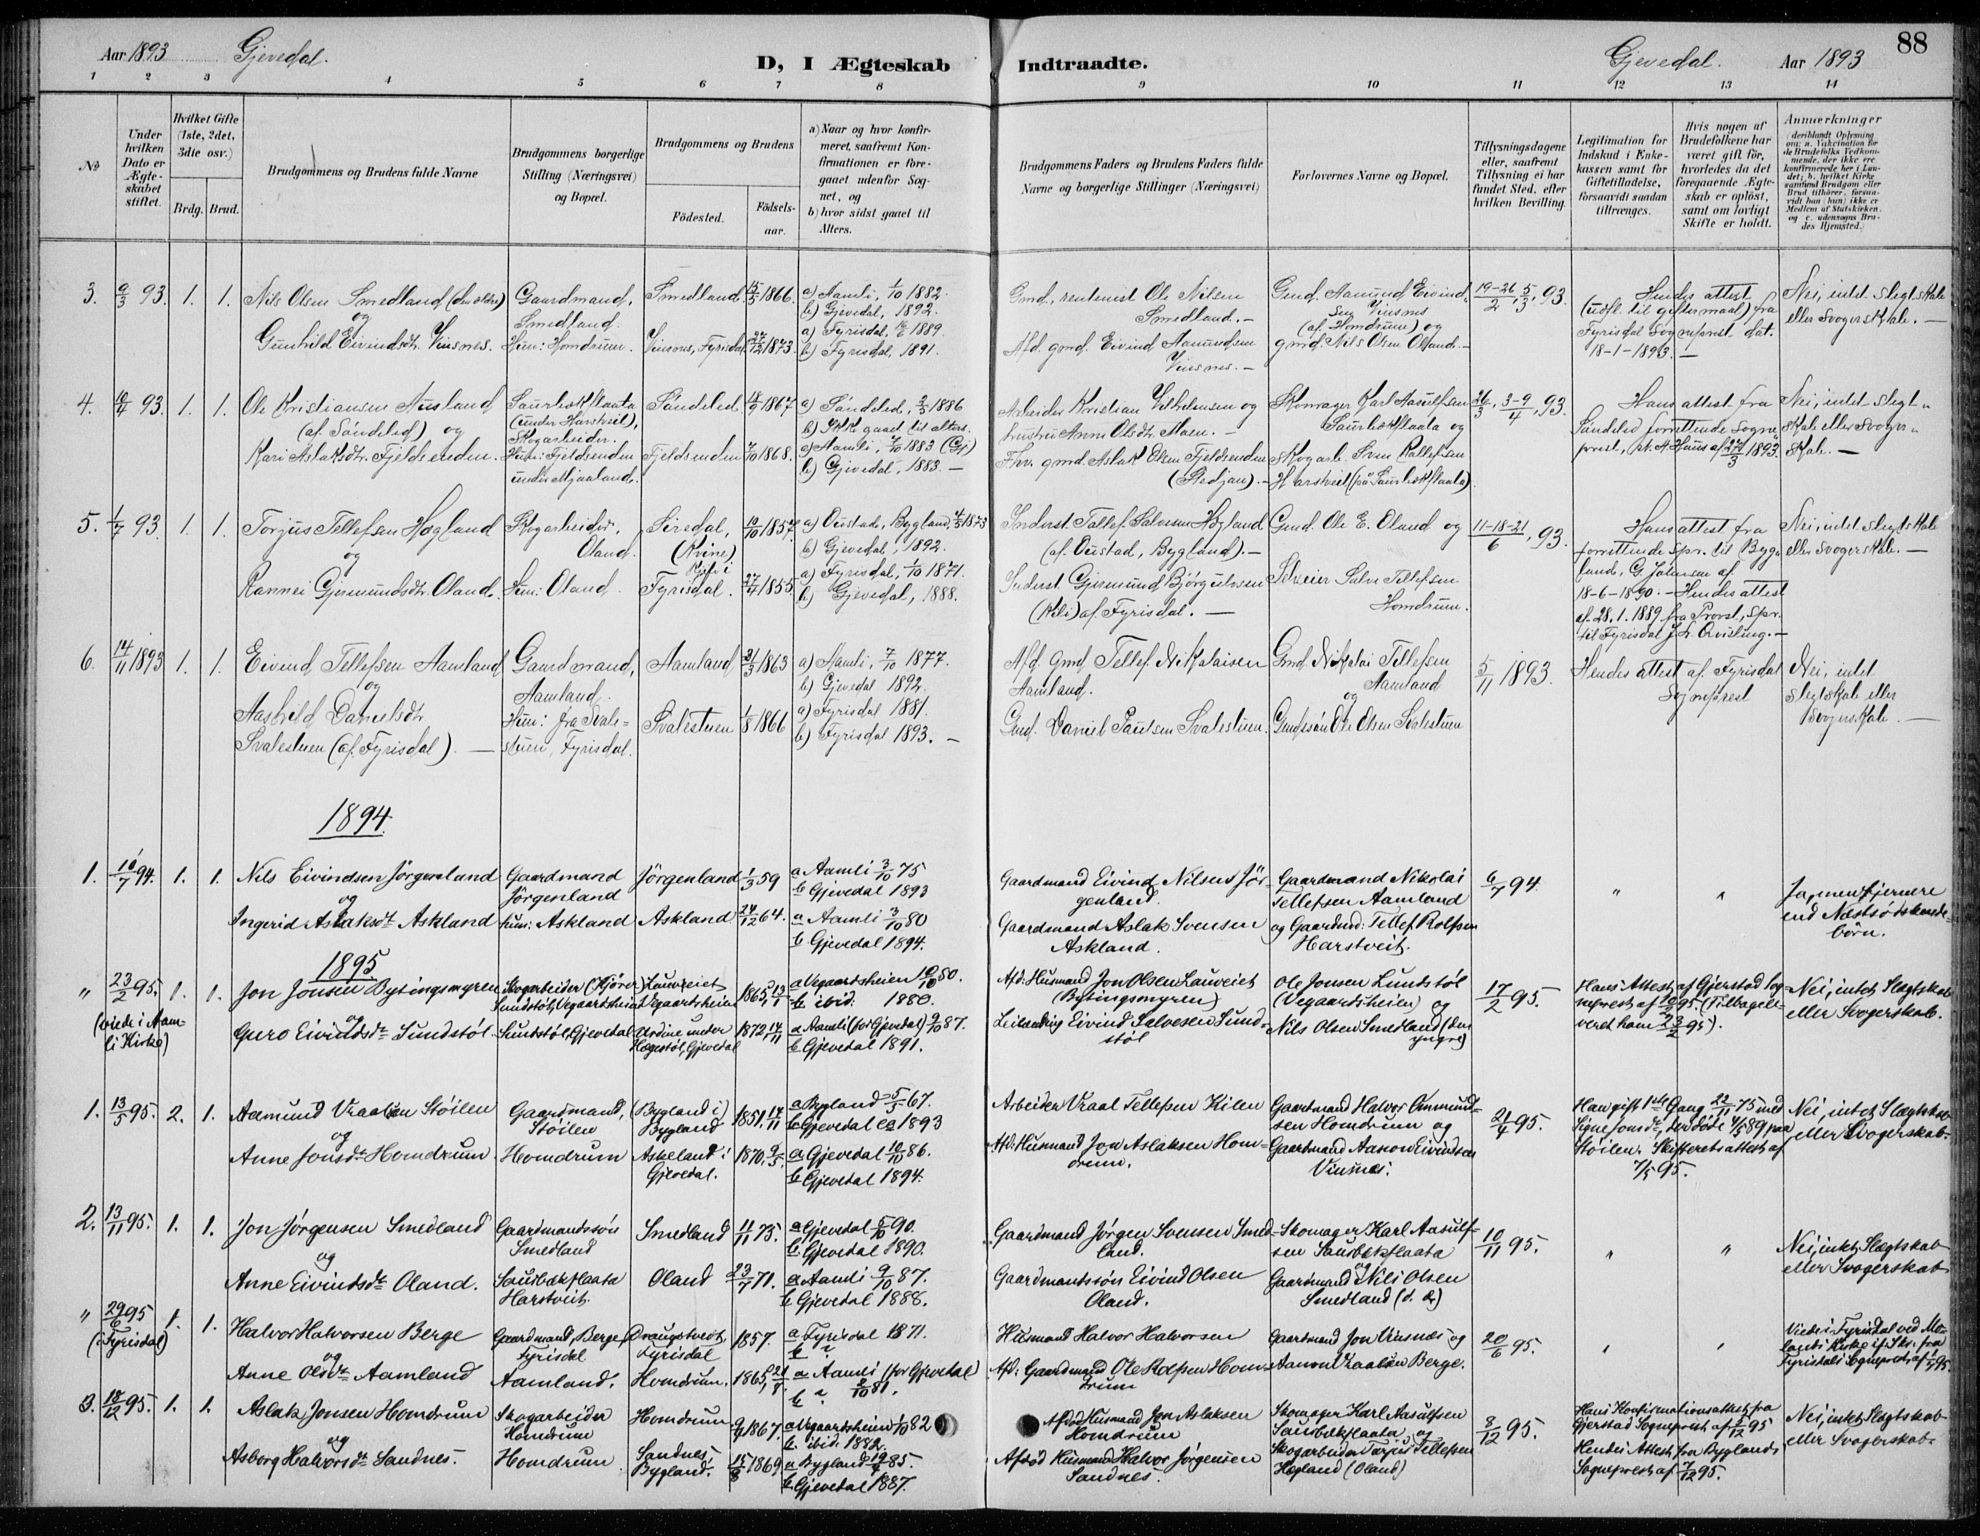 Aar 1893 Gjevedal.
D, I Ægteskab Indtraadte.
Gjevedal. Aar 1893
88
1 2 3 4 5 6 7 8 9 10 11 12 13 14
No
Under hvilken Dato er Ægteskabet stiftet.
Hvilket Gifte (1ste, 2det, 3die osv.)
Brdg. Brud.
Brudgommens og Brudens fulde Navne
Brudgommens borgerlige Stilling (Næringsvei) og Bopæl.
Brudgommens og Brudens
Fødested. Fødselsaar.
a) Naar og hvor konfirmeret, saafremt Konfirmationen er foregaaet udenfor Sognet, og
b) hvor sidst gaaet til Alters.
Brudgommens Faders og Brudens Faders fulde Navne og borgerlige Stillinger (Næringsvei)
Forlovernes Navne og Bopæl.
Tillysningsdagene eller, saafremt Tillysning ei har fundet Sted, efter hvilken Bevilling.
Legitimation for Indskud i Enkekassen samt for Giftetilladelse, forsaavidt saadan tiltrænges.
Hvis nogen af Brudefolkene har været gift før, hvorledes da det foregaaende Ægteskab er opløst, samt om lovligt Skifte er holdt.
Anmærkninger
3. 9/3 93. 1. 1. Nils Olsen Smedland (den ældre)
og
Gunhild Eivindsdtr. Vinsnes.
Gaardmand, Smedland.
Hun: Homdrum.
Smedland. 15/5 1866.
Vinsnes, Fyrisdal 27/12 1873.
a) Aamli, 1/10 1882.
b) Gjevedal, 1892.
a) Fyrisdal, 1889.
b) Fyrisdal, 1891.
Gmd., rentenist Ole Nilsen Smedland. —
Afd. gmd. Eivind Aamundsen Vinsnes. —
Gmd. Aamund Eivindsen Vinsnes
(af Homdrum) og
gmd. Nils Olsen Oland. —
19-26/2, 5/3, 93.
Hendes attest
(udfl. til giftermaal) fra
Fyrisdal Sogneprest dat.
18-1-1893. —
Nei, intet slegtskab
eller Svogerskab. —
4. 10/4 93. 1. 1. Ole Kristiansen Ausland
(af Søndeled) og
Kari Aslaksdtr. Fjeldsenden.
Saurbækflaata
(under Harstveit),
Skogarbeider.
Hun: Fjeldsenden
under Mjaaland.
Søndeled 14/9 1867
Fjeldsenden 7/10 1868.
a) Søndeled, 1886
b) Ikke gaaet til alters.
a) Aamli, 7/10 1883 (Gj)
b) Gjevedal, 1883. —
Arbeider Kristian Vilhelmsen og
hustru Anne Olsdtr. Moen. —
Fhv. gmd. Aslak Olsen Fjeldsenden
(Stedjan). —
Skomager Karl Aasulfsen
Saurbækflaata og
Skogarb. Sven Rallefsen
Harstveit (på Saurbækflaata)
26/3, 3-9/4, 93.
Hans attest fra
Søndeled forrettende Sogneprest, A. Haus af 27/3 1893.
Nei, intet slegtskab eller Svogerskab. —
5. 1/7 93. 1. 1. Torjus Tellefsen Høgland
og
Rannei Gjermundsdtr. Oland.
Skogarbeider,
Oland.
Hun: Oland.
Siredal, 10/10 1857.
Fyrisdal. 27/4 1855.
a) Oustad, Bygland, 1873
b) Gjevedal, 1892.
a) Fyrisdal, 1/10 1871.
b) Gjevedal, 1888.
Inderst Tallef Salvesen Høgland
(af Oustad, Bygland). —
Inderst Gjermund Bjørgulvsen
(Kili) af Fyrisdal. —
Gmd. Ole E. Oland og
Selveier Salve Tellefsen
Homdrum.
11-18-21/6, 93.
Hans attest fra
forrettende Spr. til Bygland, G. Johnsen af
18-6-1890. — Hendes attest
af 28.1.1889 fra Provst, spr.
til Fyrisdal J. L. Qvisling. —
Nei, intet slegtskab
eller svogerskab. —
6. 14/11 1893 1. 1. Eivind Tellefsen Aamland
og
Aashild Danielsdtr
Svalestuen (af Fyrisdal). —
Gaardmand,
Aamland.
Hun: fra Svalestuen, Fyrisdal.
Aamland 21/3 1863
Svalestuen 1/8 1866
a) Aamli, 7/10 1877.
b) Gjevedal 1892.
a) Fyrisdal 1881.
b) Fyrisdal 1893. —
Afd. Gmd. Tellef Nikolaisen
Aamland.
Gmd. Daniel Paulsen Svalestuen.
Gmd. Nikolai Tellefsen
Aamland
og
Gmdssøn Ole Olsen Svalestuen
5/11 1893.
Hendes attest af Fyrisdal
Sogneprest
Nei, intet
slegtskab eller
Svogerskab. —
1894.
1. 10/7 94. 1. 1. Nils Eivindsen Jørgensland
og
Ingerid Aslaksdtr Askland
Gaardmand
Jørgenland
hun: Askland
Jørgenland 1/3 59
Askland 24/12 64.
a Aamli 3/10 75
b Gjevedal 1893
a Aamli 3/10 80
b Gjevedal 1894.
Gaardmand Eivind Nilsen Jørgenland.
Gaardmand Aslak Svensen
Askland.
Gaardmand Nikolai
Tellefsen Aamland
og Gaardmd: Tellef Rolfsen
Harstveit.
6/7 94.
" "
Ja, men fjernere
end Næstsødskendebörn.
1895
" 23/2 95. 1. 1. (viede i Aamli Kirke)
Jon Jonsen Bytingsmyren
og
Guro Eivindsdtr Sundstøl.
Skogarbeider (Kjører)
Sundstøl, Vegaardsheien
Sundstøl, Gjevedal
Lauveiet
Vegaardsheien 1865
Ordine under
Hægestøl, Gjevedal 1872, 14/11
a Vegaardsheien 10/10 80.
b ibid. 1880.
a Aamli (for Gjevedal) 9/10 87.
b Gjevedal 1891.
Afd: Husmand Jon Olsen Lauveiet
(Bytingsmyren)
Leilænding Eivind Salvesen Sundstøl
Ole Jonsen Lundstøl
(Vegaardsheien) og
Nils Olsen Smedland (den yngre)
17/2 95.
Hans Attest af Gjerstad Sogneprest af 95 (Tilbageleveret ham 23/2 95).
Nei, intet Slægtskab
eller Svogerskab.
1. 13/5 95. 2. 1. Aamund Vraalsen Støilen
og
Anne Jonsdtr Homdrum.
Gaardmand,
Støilen
Homdrum
(Bygland i)
Bygland 1851, 17/11
Askeland i
Gjevedal. 1870,
a Bygland 5/5 67.
b Gjevedal ca 1893
a Gjevedal 10/10 86.
b Gjevedal 1894.
Arbeider Vraal Tellefsen Kilen
Afd: Husmand Jon Aslaksen Homdrum.
Gaardmand Halvor Ommundsen Homdrum og
Gaardmand Aamon Eivindsen
Vinsnes.
21/4 95.
Han gift 1ste Gang 22/11 75 med
Signe Jonsdtr, der døde 4/5 89 paa
Støilen. Skifteretsattest af
7/5 95.
Nei, intet Slægtskab
eller Svogerskab.
2. 13/11 95. 1. 1. Jon Jørgensen Smedland
og
Anne Eivindsdtr Oland.
Gaardmandssøn
Smedland
Saurbækflaata
Harstveit.
Smedland 11/11 75.
Oland 23/7 71.
a Gjevedal 5/10 90.
b Gjevedal 1890.
a Aamli 9/10 87.
b Gjevedal 1888.
Gaardmand Jørgen Svensen Smedland.
Gaardmandssøn Eivind Olsen
Oland.
Skomager Karl Aasulfsen Saurbækflaata
og
Gaardmand Nils Olsen
Smedland (d. æ)
10/11 95.
" "
Nei, intet Slægtskab
eller Svogerskab
" 29/6 95 (i Fyrisdal) 1. 1. Halvor Halvorsen Berge
og
Anne Olsdtr Aamland
Gaardmand, Berge,
Fyrisdal
Aamland.
Draugstvedt,
Fyrisdal 1857.
Homdrum. 1865,
a Fyrisdal 1871.
b "
a Aamli (for Gjevedal)
b " 2/10 81.
Husmand Halvor Halvorsen
Afd: Gaardmand Ole Rolfsen Homdrum
Gaardmand Jon Vinsnes og
Aamon Vraalsen Berge.
20/6 95.
" "
Viede i Fyrisdal ved Molands Kirke if. Skr. fra
Fyrisdals Sogneprest af 95.
3. 18/12 95. 1. 1. Aslak Jonsen Homdrum
og
Asborg Halvorsdtr Sandnes.
Skogarbeider
Homdrum
Homdrum.
Homdrum. 9/9 1867
Sandnes,
Bygland. 1869
a Vegaardsheien 1/10 82
b ibid. 1882.
a Bygland 85.
b Gjevedal 1887.
Afdød Husmand Jon Aslaksen
Homdrum
Afdød Husmand Halvor Jørgensen
Sandnes.
Skomager Karl Aasulfsen
Saurbækflaata og
Skogarbeider Torjus Tellefsen
Høgland (Oland)
8/12 95.
Hans Konfirmationsattest fra
Gjerstad Sogneprest af 95
Hendes Attest fra Byglands
Sogneprest af 7/12 95.
Nei, intet Slægtskab
eller Svogerskab.